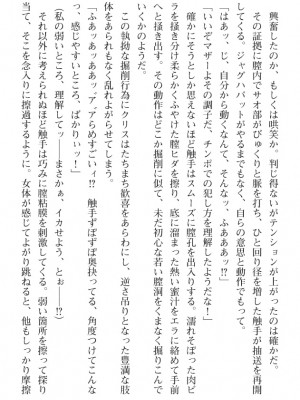 興奮したのか、もしくは嘲笑か。判じ得ないがテンションが上がったのは確かだ。
その証拠に膣内でサオ部がびゅくりと脈を打ち、ひと回り径を増した触手が抽送を再開
してくる。ジャグハバットがやるまでもなく、自らの意思と動作でもって。
「はぁッ、じ、自分から動くなんて、そんなッ、ふああああッ!?」
「いいぞマザーよその調子だ、チンポでの犯し方を理解したようだな!」
確かにそうとしか思えないほど触手はスムーズに膣孔を出入りする。濡れそぼった肉ビ
ラを掻き分け柔らかくふやけた膣ヒダを擦り、底に溜まった熱い蜜汁をエラに絡めて手前
へと掻き出す。その動作はどこか掘削に似て、未だ初心な若い膣洞をくまなく掘りこんで
いくかのようだ。
この執拗な掘削行為にクリスはたちまち歓喜をあらわにし、逆さ吊りとなった豊満な肢
体をあられもなく乱れよがらせてしまう。
「ふああッああああッア゛ァらめすごいィ!? 触手ずぼずぼ奥抉ってる、角度つけてこんな
っ、感じやすいところ、ばかりぃッ!」
(私の弱いところ、理解してッ――まさかぁ、イカせよう、とぉ――!?)
それ以外に考えられぬほど触手は巧みに膣粘膜を刺激してくる。弱い箇所を擦って探り
当て、そこを念入りに擦過するように。女体が感じてよがり跳ねると、他もしっかり摩擦